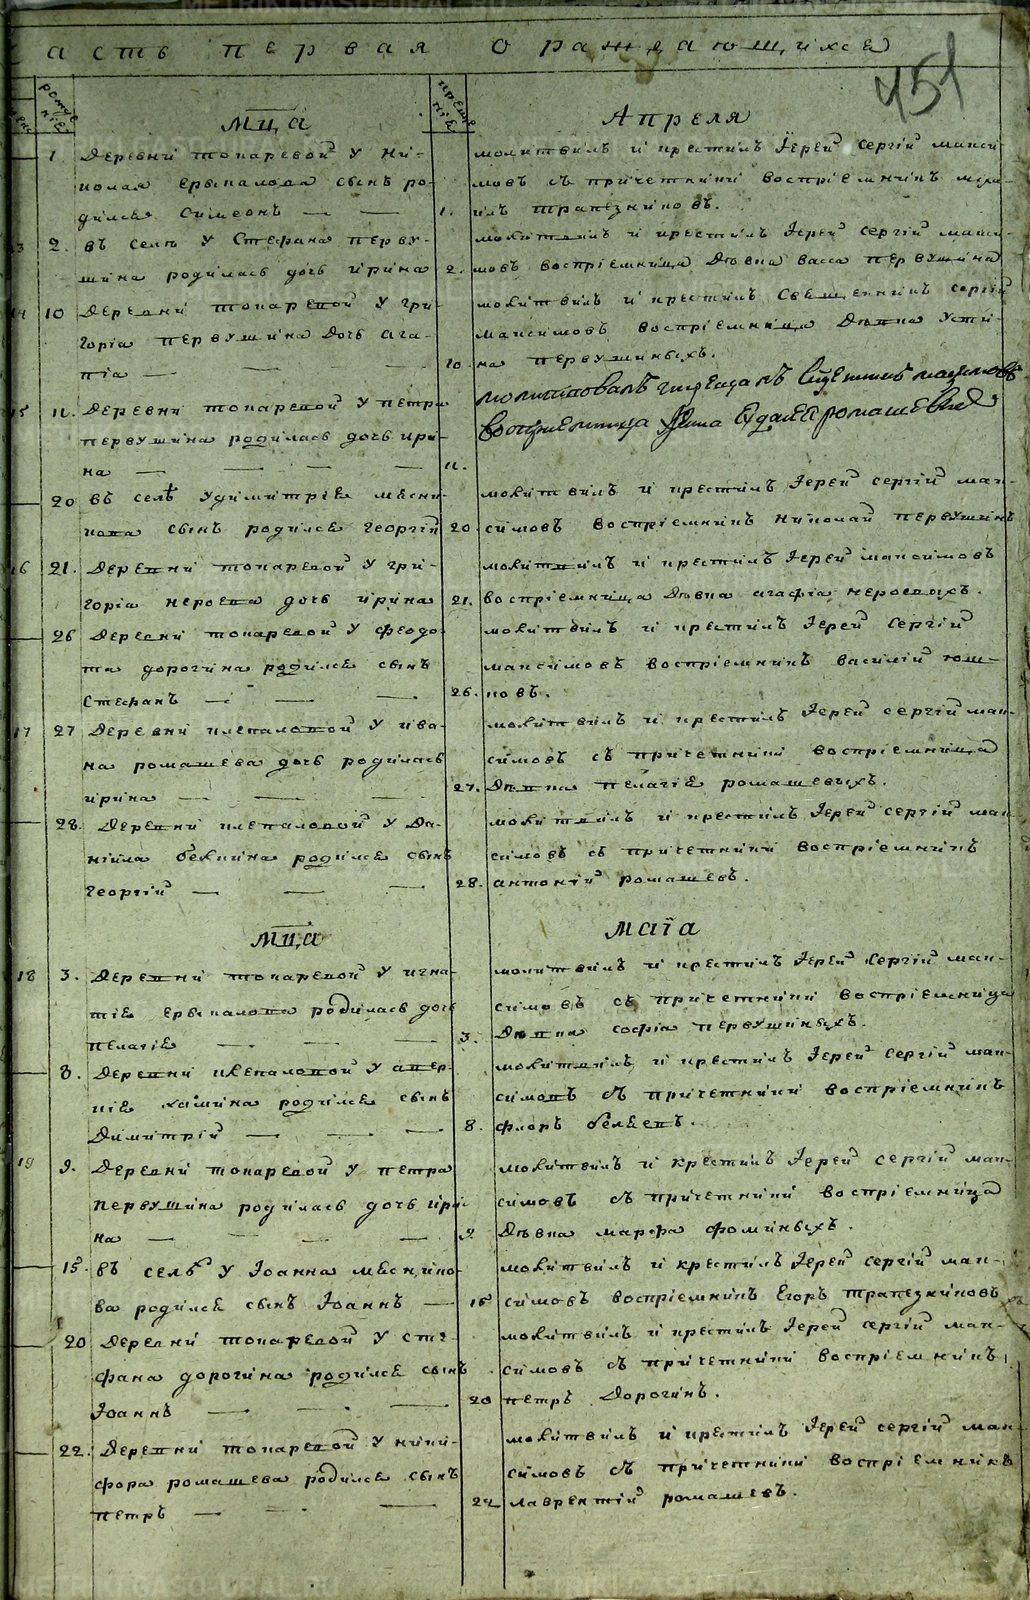 часть первая о раждающихсѧ
451
рожде
нїе
креще
нїе
мц҃а Апреля
1 деревни токаревой у ни-
колая ерыкалова сынъ ро-
дилсѧ Симеонъ — —
молитвилъ и крестилъ Їерей сергїй макси-
мовъ съ причетники воспрїемникъ миха-
1. илъ трапезниковъ.
13 2. въ селѣ у Стефана перву-
шина родилась дочь ирина
молитвилъ и крестилъ Їерей сергїй макси-
2. мовъ воспрїемница дѣвка васса первушина
14 10 деревни токаревой у гри-
горїа первушина дочь ага-
пїа — — —
молитвилъ и крестилъ Священникъ сергїй
максимовъ воспрїемница дѣвка усти-
10 на первушиныхъ.
15 11. деревни токаревой у петра
первушина родилась дочь ири-
на — — — —
молитвовалъ и крещалъ Священникъ максимовъ
воспрїемница
11.
20 въ селѣ у димитрїѧ мѧсни-
кова сынъ родилсѧ георгїй
молитвилъ и крестилъ Їерей сергїй мак-
20 симовъ воспрїемникъ николай первушинъ
16 21. деревни токаревой у гри-
горїа нероева дочь ирина
молитвилъ и крестилъ Їерей максимовъ
21. воспрїемница дѣвка агафїа нероевыхъ.
26 деревни токаревой у феодо-
та дорогина родилсѧ сынъ
Стефанъ — — —
молитвилъ и крестилъ Їерей Сергїй
максимовъ воспрїемникъ василїй юш-
26. ковъ.
17 27 деревни клепаловой у ива-
на ромашева дочь родилась
ирина — — —
молитвилъ и крестилъ Їерей сергїй мак-
симовъ съ причетники воспрїемница
27. дѣвка пелагїѧ ромашевыхъ.
28. деревни клепаловой у да-
нїила белкина родилсѧ сынъ
георгїй — — —
молитвилъ и крестилъ Їерей сергїй мак-
симовъ съ причетники воспрїемникъ
28. антонїй ромашевъ.
мц҃а маїа
18 3. деревни токаревой у игна-
тїѧ ерыкалова родилась дочь
пелагїѧ — — —
молитвилъ и крестилъ Їерей Сергїй мак-
симовъ съ причетники воспрїемница
3. дѣвка софїа первушиныхъ.
8. деревни клепаловой у авер-
кїѧ родилсѧ сынъ
димитрїй — — —
молитвилъ и крестилъ Їерей Сергїй мак-
симовъ съ причетники воспрїемникъ
8. флоръ белѧевъ.
19 9. деревни токаревой у петра
первушина родилась дочь ири-
на — — — —
молитвилъ и крестилъ Їерей сергїй мак-
симовъ съ причетники воспрїемница
9. дѣвка марфа фоминыхъ.
15. въ селѣ у Їоанна мѧснико-
ва родилсѧ сынъ Їоаннъ —
молитвилъ и крестилъ Їерей сергїй мак-
15 симовъ воспрїемникъ Егоръ трапезниковъ
20 деревни токаревой у сте-
фана дорогина родилсѧ сынъ
Їоаннъ — — —
молитвилъ и крестилъ Їерей сергїй мак-
симовъ съ причетники воспрїемникъ
20 петръ дорогинъ.
22. деревни токаревой у ники-
фора ромашева родилсѧ сынъ
петръ — — —
молитвилъ и крестилъ Їерей сергїй мак-
симовъ съ причетники воспрїемникъ
22 лаврентїй ромашевъ.
METRIKI.GASO-URAL.RU